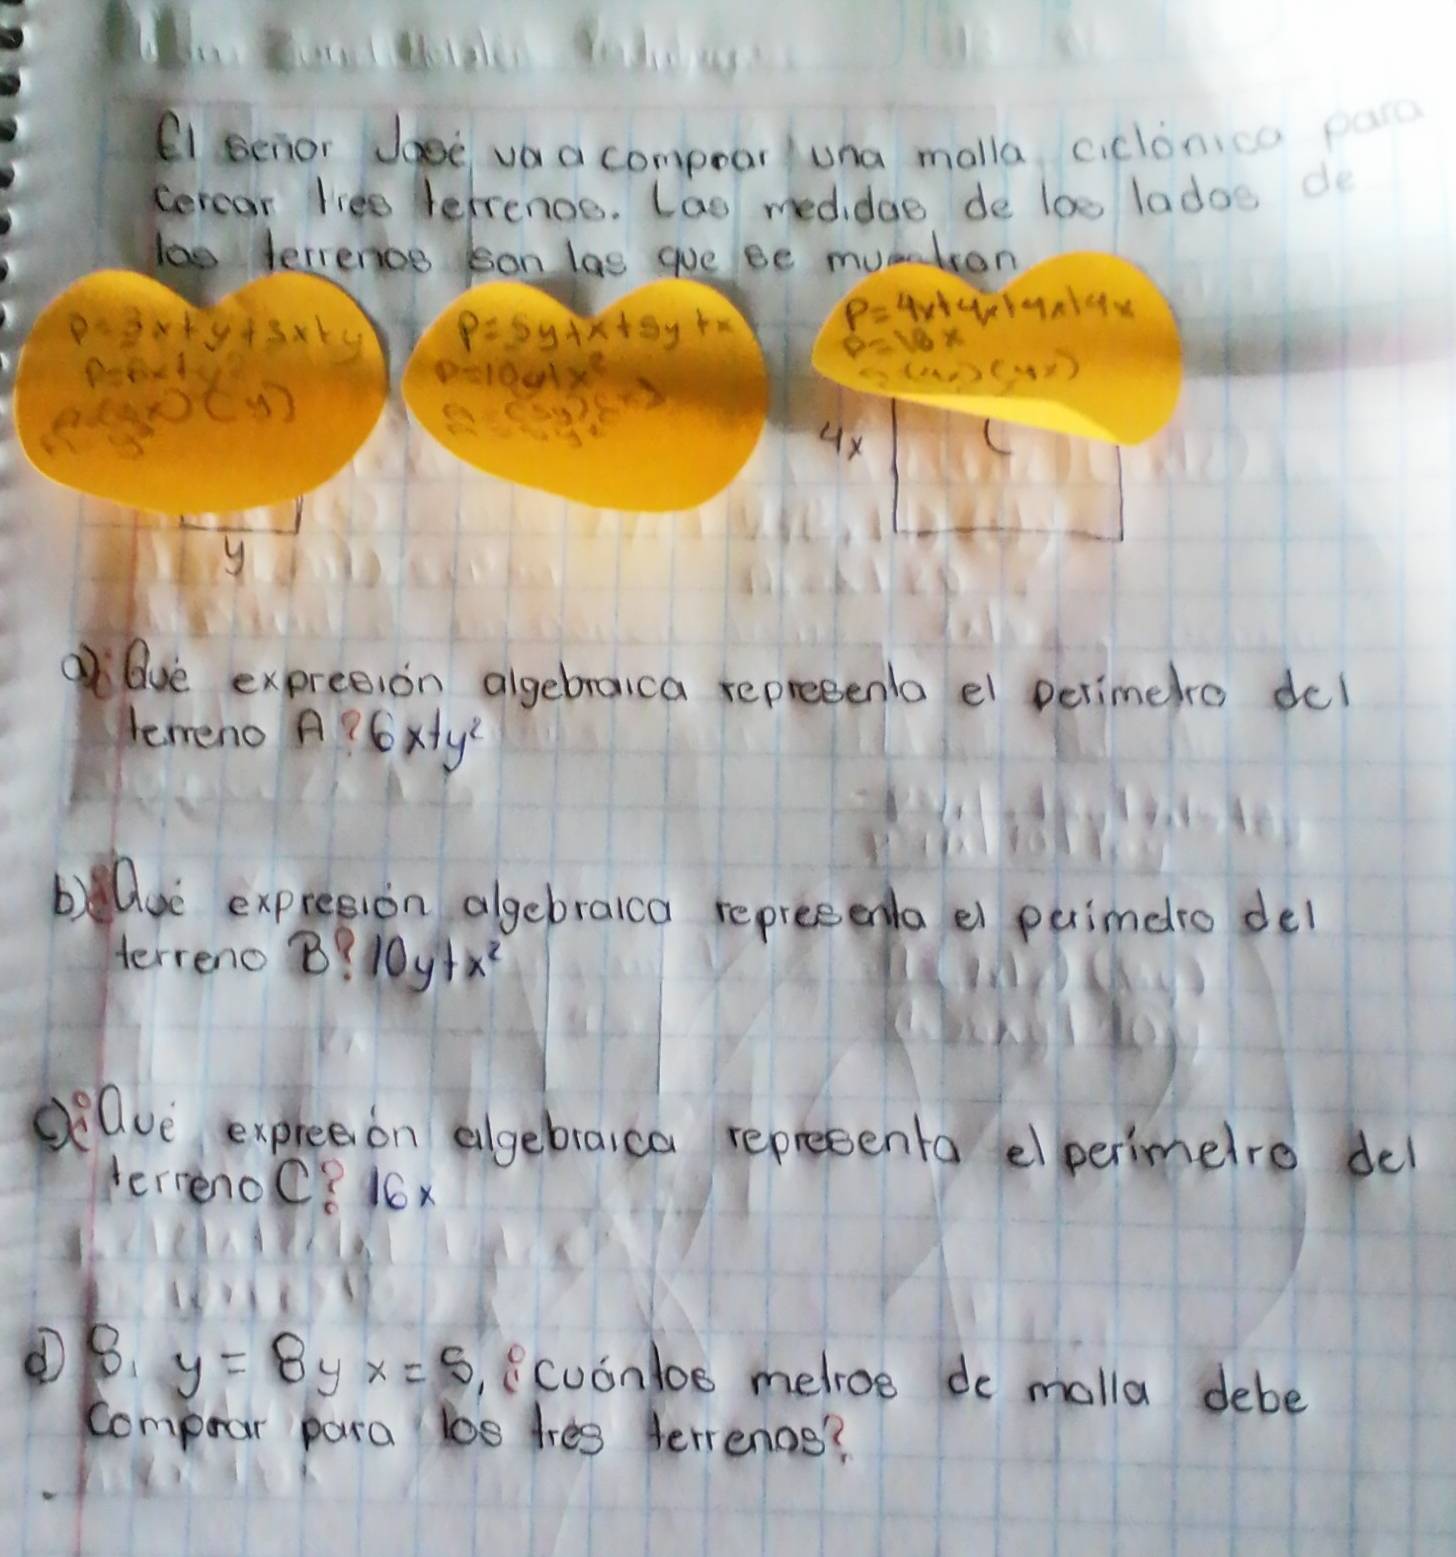 El señor José va a comprar una malla ciclónica para
cercar tres terrenos. Las medidas de los lados de
los terrenos son las que se muestran
P=3x+y+3x+y
P=6x+y²
A=(3x)(y)
P=5y+x+5y+x
P=10y+x²
P=4x+4x+4x+4x
P=16x
(4x)(4x)
4x
C
y
a) ¿Qué expresión algebraica representa el perimetro del
terreno A? 6x+y²
b) ¿Qué expresión algebraica representa el perimetro del
terreno B? 10y+x²
c) ¿Qué expresión algebraica representa el perimetro del
terreno C? 16x
d) Si y=8 y x=5, ¿cuántos metros de malla debe
comprar para los tres terrenos?